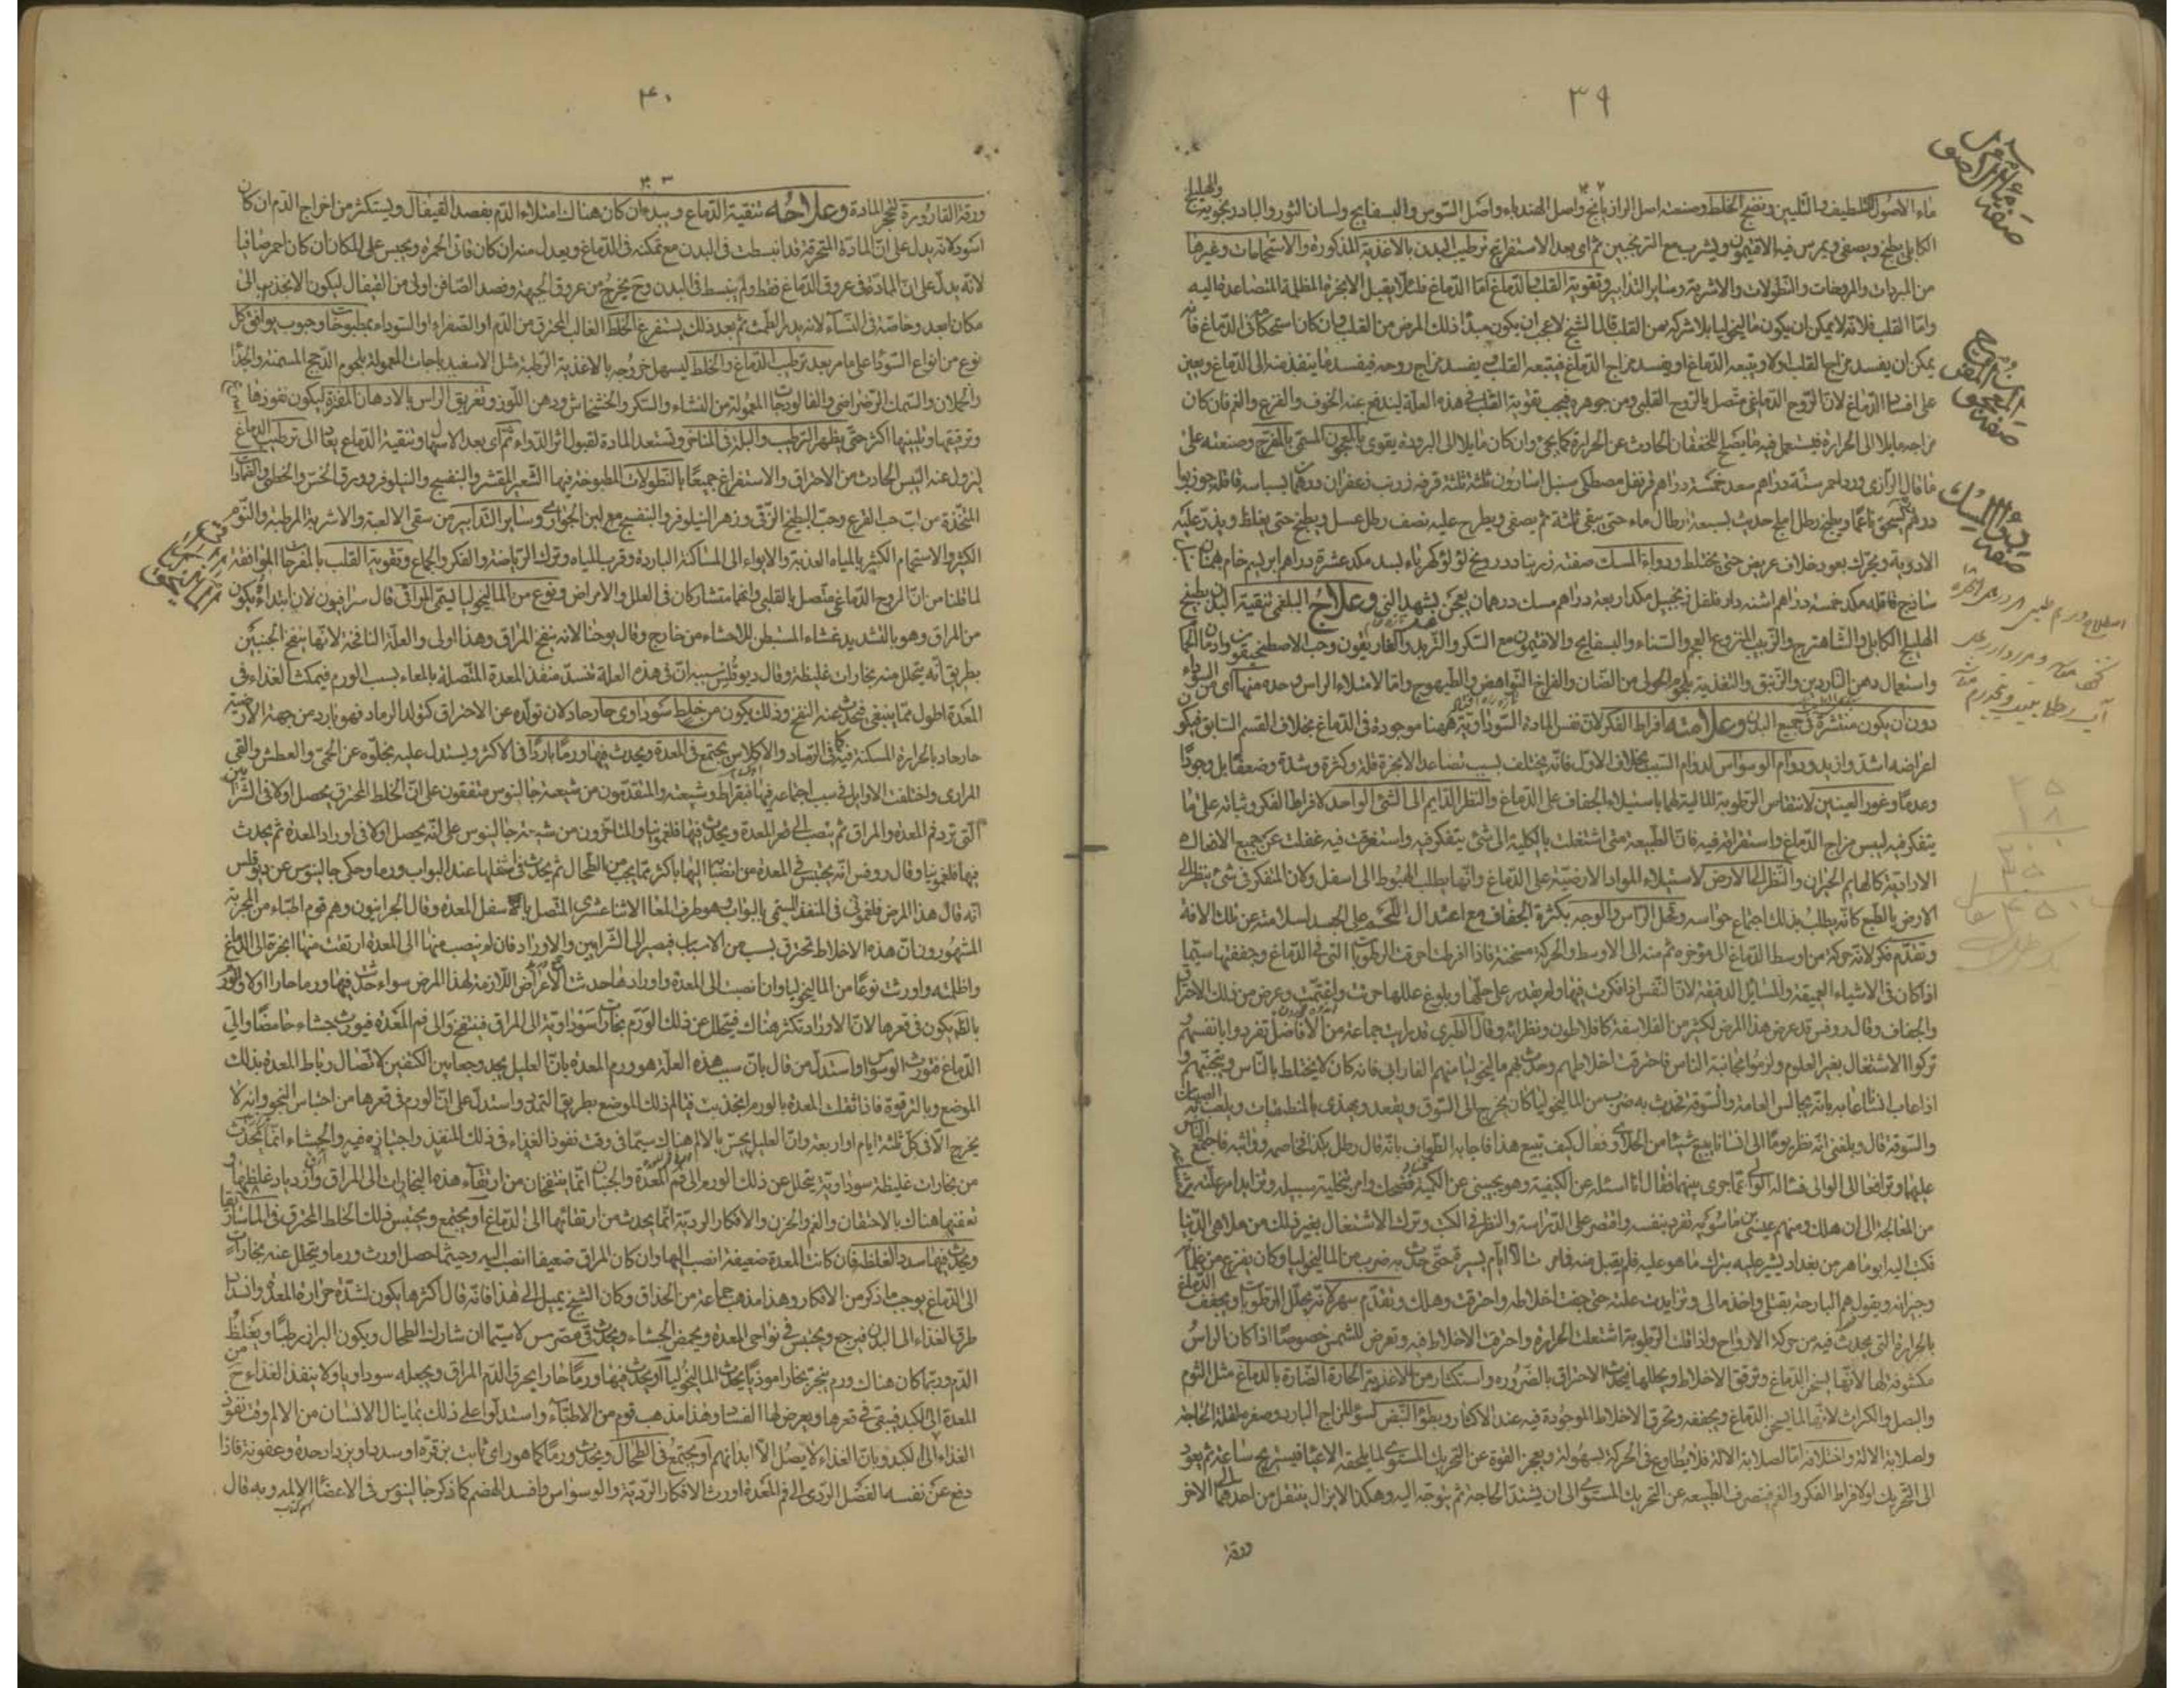 ٣٩
ماء الاصول للتلطيف والتليين ونضج الخلط وصنعته اصل الرازيانج واصل الهندباء واصل السوس والبسفايج ولسان الثور والبادرنجويه والهليلج
الكابلي يطبخ ويصفى ويمرس فيه الافتيمون ويشرب مع الترنجبين ثم اى بعد الاستفراغ ترطيب البدن بالاغذية المذكورة والاستحمامات وغيرها
من المربيات والمروخات والنطولات والاشربة وساير التدابير وتقوية القلب والدماغ اما الدماغ فلئلا يقبل الابخرة المظلمة المتصاعدة اليه
واما القلب فلانه لايمكن ان يكون ماليخوليا بلا شركة من القلب قال الشيخ لا عجب ان يكون مبدأ ذلك المرض من القلب وان كان استحكامه فى الدماغ فانه
يمكن ان يفسد مزاج القلب اولا ويتبعه الدماغ او يفسد مزاج الدماغ فيتبعه القلب ويفسد مزاج روحه فيفسد ما ينفذ منه الى الدماغ ويعين
على افساد الدماغ لان الروح الدماغى متصل بالروح القلبى ومن جوهره فيجب تقوية القلب فى هذه العلة ليندفع عنه الخوف والفزع والغم فان كان
مزاجه مايلا الى الحرارة فيستعمل فيه ما يصلح للخفقان الحادث عن الحرارة كما يجئ وان كان مايلا الى البرودة يقوى بالمعجون المسمى بالمفرح وصنعته على
ما قال الرازى ورد احمر ستة دراهم سعد خمسة دراهم قرنفل مصطكى سنبل اسارون ثلثة ثلثة قرفه زرنب زعفران درهمان بسباسه قاقله جوزبوا
درهم يسحق ناعما ويطبخ رطل املج حديث بسبعة ارطال ماء حتى يبقى ثلثة ثم يصفى ويطرح عليه نصف رطل عسل ويطبخ حتى يغلظ ويذر عليه
الادوية ويحرك بعود خلاف عريض حتى يختلط ودواء المسك صفته زرنباد درونج لؤلؤ كهرباء بسد مكد عشرة دراهم ابريسم خام
ساذج قاقله مكد خمسة دراهم اشنه دارفلفل زنجبيل مكد اربعة دراهم مسك درهمان يعجن بشهد النى وعلاج البلغمى تنقية البدن بطبيخ
الهليلج الكابلى والشاهترج والزبيب المنزوع العجم والسناء والبسفايج والافتيمون مع السكر والتربد والغاريقون وحب الاصطمحيقون
واستعمال دهن الناردين والزنبق والتغذية بلحوم الحولى من الضان والفراخ النواهض والطيهوج واما الامتلاء الراس وحده منها اى من السوداء
دون ان يكون منتشرة فى جميع البدن وعلامته افراط الفكر لان نفس المادة السوداوية ههنا موجودة فى الدماغ بخلاف القسم السابق فيكون
اعراضه اشد وازيد ودوام الوسواس لدوام السبب بخلاف الاول فانه يختلف بسبب تصاعد الابخرة قلة وكثرة وشدة وضعفا بل وجودا
وعدما وغور العينين لانتقاص الرطوبة المالية لهما باستيلاء الجفاف على الدماغ والنظر الدايم الى الشئ الواحد لافراط الفكر وثباته على ما
يتفكر فيه ليبس مزاج الدماغ واستغراقه فيه فان الطبيعة متى اشتغلت بالكلية الى شئ يتفكر فيه واستغرقت فيه غفلت عن جميع الافعال
الارادية كالهايم الحيران والنظر الى الارض لاستيلاء المواد الارضية على الدماغ وانها يطلب الهبوط الى اسفل ولان المتفكر فى شئ ينظر الى
الارض بالطبع كانه يطلب بذلك اجتماع حواسه وتحل الراس والوجه بكثرة الجفاف مع اعتدال اللحم على الجسد لسلامته عن تلك الافة
وتقدم فكر لانه حركة من اوسط الدماغ الى مؤخره ثم منه الى الاوسط والحركة مسخنة فاذا افرطت احرقت الرطوبات التى فى الدماغ وجففتها سيما
اذا كان فى الاشياء العميقة والمسايل الدقيقة لان النفس اذا فكرت فيها ولم يقدر على حلها وبلوغ عللها حزنت واغتمت وعرض من ذلك الاحتراق
والجفاف وقال روفس قد عرض هذا المرض لكثير من الفلاسفة كافلاطون ونظرائه وقال الطبرى قد رايت جماعة من الافاضل تفردوا بانفسهم
تركوا الاشتغال بغير العلوم ولزموا مجانبة الناس فاحترقت اخلاطهم وحدث بهم ماليخوليا منهم الفارابى فانه كان لا يختلط بالناس ويتجنبهم
اذا عاب انسانا عابه بانه يجالس العامة والسوقة فحدث به ضرب من الماليخوليا كان يخرج الى السوق ويقعد ويهذى
والسوقة قال وبلغنى انه نظر يوما الى انسان يبيع شيئا من الحلاوى فقال كيف تبيع هذا فاجابه الطواف بانه قال رطل بكذا فخاصمه وواثبه فاجتمع الناس
عليهما وترافعا الى الوالى فساله الوالى عما جرى بينهما فقال انا اسئله عن الكيفية وهو يجيبنى عن الكمية فضحك وامر بتخلية سبيله وتزايد امر علته
من المعالجة الى ان هلك ومنهم عيسى بن ماسويه تفرد بنفسه واقتصر على الدراسة والنظر فى الكتب وترك الاشتغال بغير ذلك من ملاهى الدنيا
فكتب اليه ابو ماهر من بغداد يشير عليه بترك ما هو عليه فلم يقبل منه فلم الا ايام يسيرة حتى حدث به ضرب من الماليخوليا وكان يفزع من
وجيرانه ويقول هم البارحة بقتلى واخذ مالى وتزايدت علته حتى جفت اخلاطه واحترقت وهلك وتقدم سهر لانه يحلل الرطوبات ويجفف الدماغ
بالحرارة التى يحدث فيه من حركة الارواح واذا قلت الرطوبة اشتعلت الحرارة واحترقت الاخلاط فيه وتعرض للشمس خصوصا اذا كان الراس
مكشوفة لها لانها يسخن الدماغ وترقق الاخلاط ويحللها فيحدث الاحتراق بالضرورة واستكثار من الاغذية الحارة الضارة بالدماغ مثل الثوم
والبصل والكراث لانها لما يسخن الدماغ ويجففه وتحرق الاخلاط الموجودة فيه عند الاكثار وبطؤ النبض لسوء المزاج البارد وصغره لقلة الحاجة
ولصلابة الالة واختلافه اما لصلابة الالة فلا يطاوع فى الحركة بسهولة ويعجز القوة عن التحريك المستوى لما يلحقه الاعياء فيستريح ساعة ثم يعود
الى التحريك اولا فراط الفكر والغم فينصرف الطبيعه عن التحريك المستوى الى ان يشتد الحاجة ثم يتوجه اليه وهكذا لايزال ينتقل من احدهما الى الاخر
ورقة
صفة ماء الاصول
صفة المعجون المفرح
صفة دواء المسك
٤٠
ورقة القارورة لتحجر المادة وعلاجه تنقية الدماغ ويبدء ان كان هناك امتلاء الدم بفصد القيفال ويستكثر من اخراج الدم ان كان
اسود لانه يدل على ان المادة المتحرقة قد انبسطت فى البدن مع تمكنه فى الدماغ ويعدل منه ان كان قانى الحمرة ويحبس على المكان ان كان احمر صافيا
لانه يدل على ان المادة فى عروق الدماغ فقط ولم ينبسط فى البدن وح يخرج من عروق الجبهة وفصد الصافن اولى من القيفال ليكون الانجذاب الى
مكان ابعد وخاصة فى النساء لانه يدر الطمث ثم بعد ذلك يستفرغ الخلط الغالب المحترق من الدم او الصفراء او السوداء بمطبوخات وحبوب يوافق كل
نوع من انواع السوداء على ما مر بعد ترطيب الدماغ والخلط ليسهل خروجه بالاغذية الرطبة مثل الاسفيدباجات المعمولة بلحوم الدجج المسمنة والجداء
والحملان والسمك الرضراضى والفالوذجات المعمولة من النشاء والسكر والخشخاش ودهن اللوز وتغريق الراس بالادهان المفترة ليكون نفوذها
وترقيقها وتليينها اكثر حتى يظهر الترطيب والبلة فى المناخر وتستعد المادة لقبول اثر الدواء ثم اى بعد الاسهال وتنقية الدماغ يعاد الى ترطيب الدماغ
ليزول عنه اليبس الحادث من الاحتراق والاستفراغ جميعا بالنطولات المطبوخة فيها الشعير المقشر والبنفسج والنيلوفر وورق الخس والخطمى والضمادات
المتخذة من لب حب القرع وحب البطيخ الزقى وزهر النيلوفر والبنفسج مع لبن الجوارى وساير التدابير من سقى الالعبة والاشربة المرطبة والنوم
الكثير والاستحمام الكثير بالمياه العذبة والايواء الى المساكنة الباردة وقرب المياه وترك الرياضة والفكر والجماع وتقوية القلب بالمفرحات الموافقة
لما قلنا من ان الروح الدماغى متصل بالقلبى وانهما متشاركان فى العلل والامراض ونوع من الماليخوليا يسمى المراقى قال سرافيون لان ابتداءه يكون
من المراق وهو بالتشديد غشاء المستبطن للاحشاء من خارج وقال يوحنا لانه ينفخ المراق وهذا اولى والعلة النافخة لانها ينفخ الجنبين
بطريق انه يتحلل منه بخارات غليظة وقال ديوقليس سببه ان فى هذه العلة تنسد منفذ المعدة المتصلة بالمعاء بسبب الورم فيمكث الغذاء فى
المعدة اطول مما ينبغى فيحدث عنه النفخ وذلك يكون من خلط سوداوى حار حاد لان تولده عن الاحتراق كتولد الرماد فهو بارد من جهة الارضية
حار حاد بالحرارة المسكنة فيه كما فى الرماد والاكلاس يجتمع فى المعدة ويحدث فيها ورما باردا فى الاكثر ويستدل عليه بخلوه عن الحمى والعطش والقى
المرارى واختلفت الاوايل فى سبب اجتماعه فيها فبقراط وشيعته والمتقدمون من شيعة جالينوس متفقون على ان الخلط المحترق يحصل اولا فى الشرايين
التى ترد فم المعدة والمراق ثم ينصب الى قعر المعدة ويحدث فيها فلغمونيا والمتاخرون من شيعة جالينوس على انه يحصل اولا فى اوراد المعدة ثم يحدث
فيها فلغمونيا وقال روفس انه يحتبس فى المعدة من انصبابه اليها باكثر مما يجب من الطحال ثم يحدث فى اسفلها عند البواب ورما وحكى جالينوس عن ديوقلس
انه قال هذا المرض فلغمونى فى المنفذ المسمى بالبواب وهو طرف المعا الاثنا عشرى المتصل باسفل المعدة وقال الحرانيون وهم قوم اطباء من الحربة
المشهورون ان هذه الاخلاط تحترق بسبب من الاسباب فيصير الى الشرايين والاوراد فان لم ينصب منها الى المعدة ارتقت منها ابخرة الى الدماغ
واظلمته واورثت نوعا من الماليخوليا وان انصب الى المعدة واورادها حدث الاعراض اللازمة لهذا المرض سواء حدث فيها ورما حارا اولا والورم
بالظهر يكون فى قعرها لان الاوراد تكثر هناك فيتحلل عن ذلك الورم بخارات سوداوية الى المراق فينتفخ والى فم المعدة فيورث جشاء حامضا والى
الدماغ فتورث الوسواس واستدل من قال بان سبب هذه العلة هو ورم المعدة بان العليل يجد وجعا بين الكتفين لاتصال رباط المعدة بذلك
الموضع وبالترقوة فاذا ثقلت المعدة بالورم انجذبت فيالم ذلك الموضع بطريق التمدد واستدل على ان الورم فى قعرها من احتباس النجو وانه لا
يخرج الا فى كل ثلثة ايام او اربعة وان العليل يحس بالالم هناك سيما فى وقت نفوذ الغذاء فى ذلك المنفذ واجتيازه فيه والجشاء انما يحدث
من بخارات غليظة سوداوية يتحلل عن ذلك الورم الى فم المعدة والجنبان انما ينتفخان من ارتقاء هذه البخارات الى المراق وازدياد غلظها و
تعفنها هناك بالاحتقان والغم والحزن والافكار الردية انما يحدث من ارتقائها الى الدماغ او يجتمع ويحتبس ذلك الخلط المحترق فى الماساريقا
ويحدث فيها سددا لغلظه فان كانت المعدة ضعيفة انصب اليها وان كان المراق ضعيفا انصب اليه وحيثما حصل اورث ورما ويتحلل عنه بخارات
الى الدماغ يوجب ما ذكر من الافكار وهذا مذهب جماعة من الحذاق وكان الشيخ يميل الى هذا فانه قال اكثرها يكون لشدة حرارة المعدة وانسداد
طرق الغذاء الى البدن فيرجع ويحتبس فى نواحى المعدة ويحمض الجشاء ويحدث قى مضرس لاسيما ان شارك الطحال ويكون البراز رطبا ويغلظ
الدم وربما كان هناك ورم يبخر بخارا موذيا يحدث الماليخوليا او يحدث فيها ورما حارا يحرق الدم المراق ويجعله سوداويا ولا ينفذ الغذاء ح من
المعدة الى الكبد فيبقى فى قعرها ويعرض لها الفساد وهذا مذهب قوم من الاطباء واستدلوا على ذلك بما ينال الانسان من الالم وقت نفوذ
الغذاء الى الكبد وبان الغذاء لا يصل الا ابدانهم او يجتمع فى الطحال ويحدث ورما كما هو راى ثابت بن قرة او سددا ويزداد حدة وعفونة فاذا
دفع عن نفسه الفضل الردى الى فم المعدة اورث الافكار الردية والوسواس وافسد الهضم كما ذكر جالينوس فى الاعضاء الالمه وبه قال